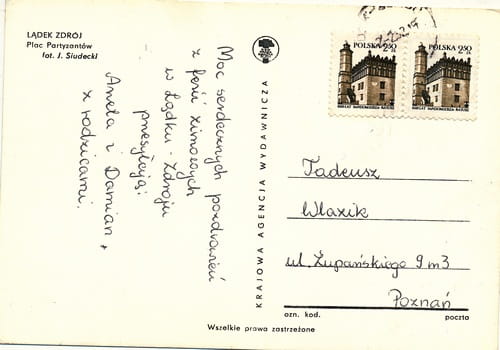 LĄDEK ZDRÓJ
Plac Partyzantów
fot. J. Siudecki
Moc serdecznych pozdrowień
z ferii zimowych
w Lądku-Zdroju
przesyłają:
Aneta i Damian +
x rodzicami.
KRAJOWA AGENCJA WYDAWNICZA
POLSKA 2,50
POLSKA 2,50
Tadeusz
Wlaxik
ul. Żupańskiego 9 m 3
Poznań
ozn. kod.
poczta
Wszelkie prawa zastrzeżone